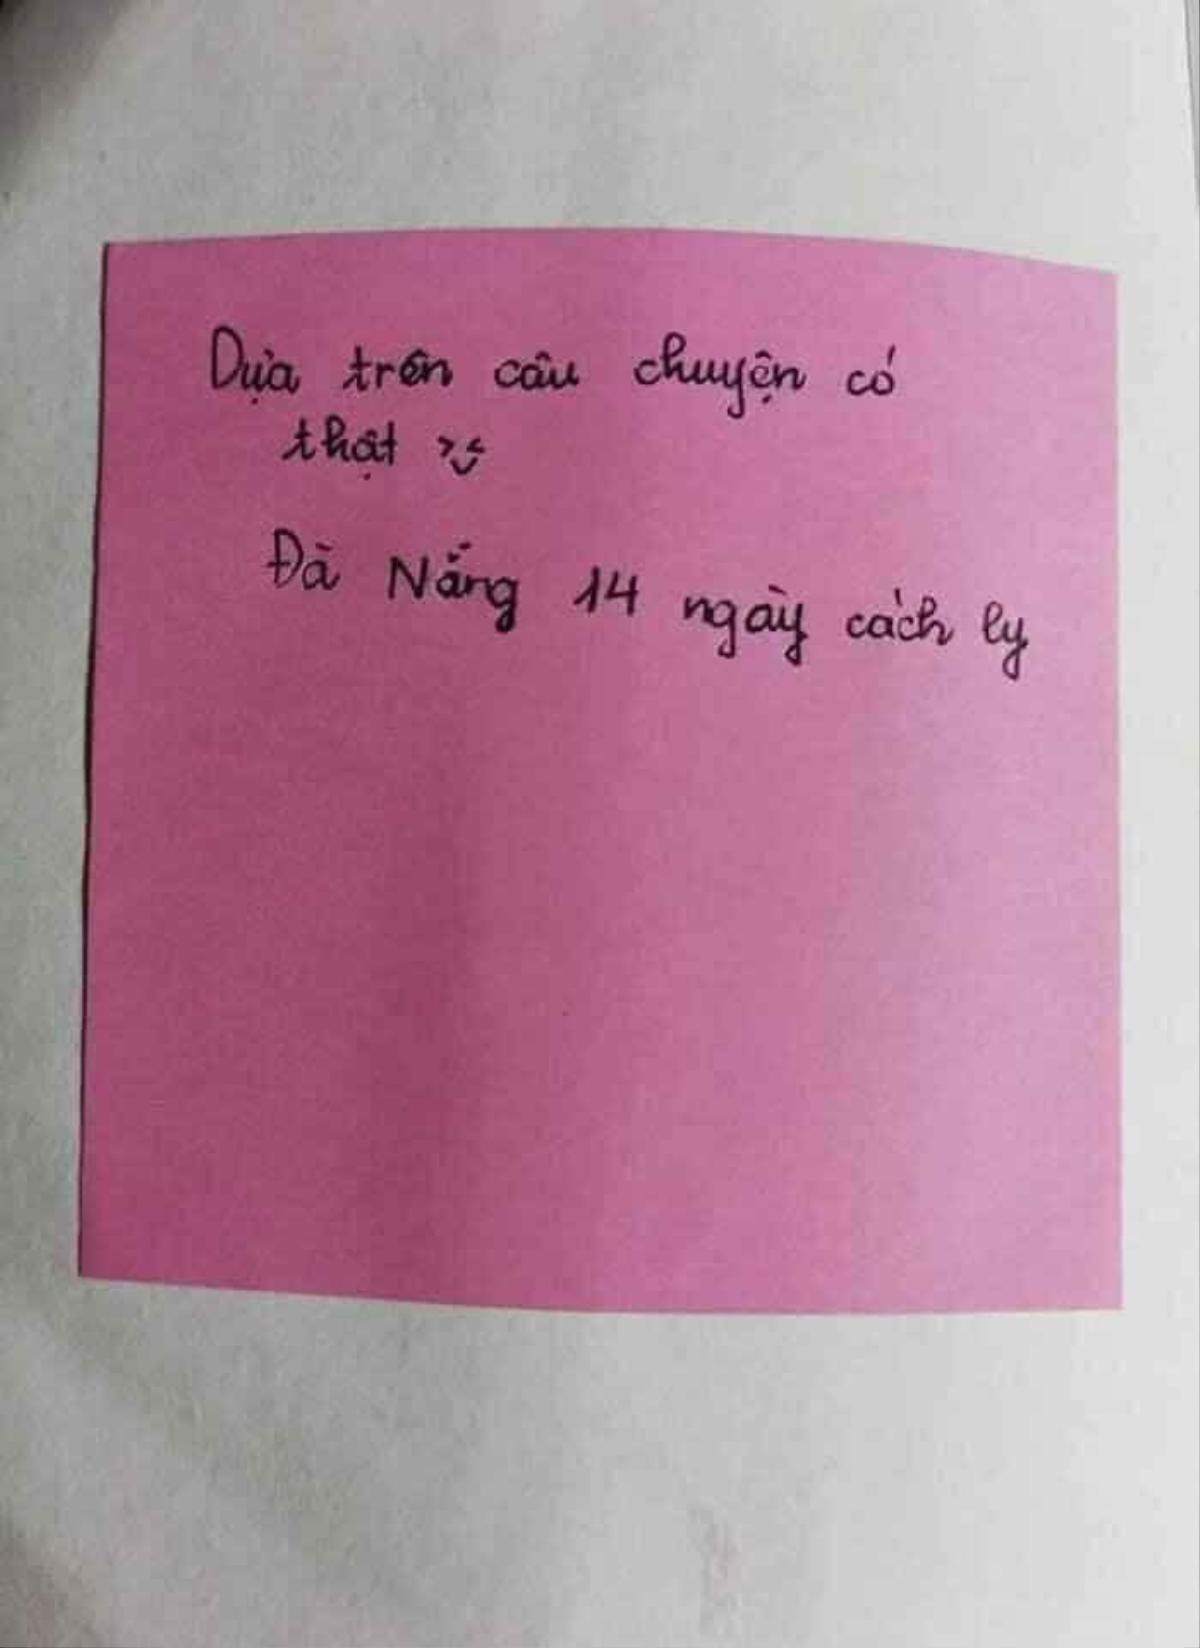 Dựa trên câu chuyện có
thật >‿<
Đà Nẵng 14 ngày cách ly